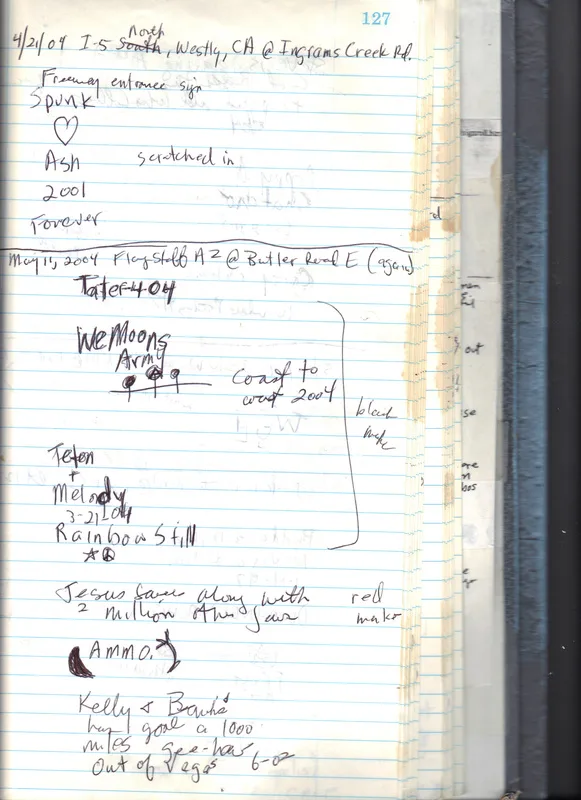 127
4/21/04 I-5 North South, Westly, CA @ Ingrams Creek Rd.
Freeway entrance sign
Spunk
♡
Ash scratched in
2001
Forever
May 11, 2004 Flagstaff AZ @ Butler Road E (again)
Tater 404
WeMoons
Army
Coast to
coast 2004
black
Teton
+
Melody
3-21-04
Rainbow Still
Jesus Saves along with red
2 million other
AMMO.
Kelly &
has goal a 1000
miles
Out of Vegas 6-02